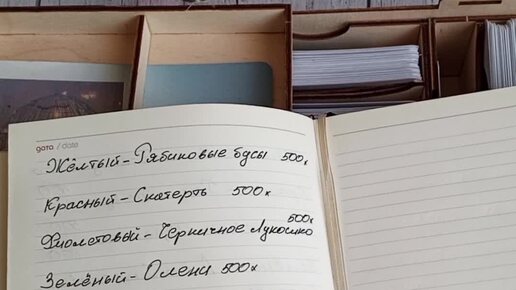 дата / date
Жёлтый - Рябиновые бусы 500х
Красный - Скатерть 500х
500х
Фиолетовый - Черничное Лукошко
Зелёный - Олени 500х